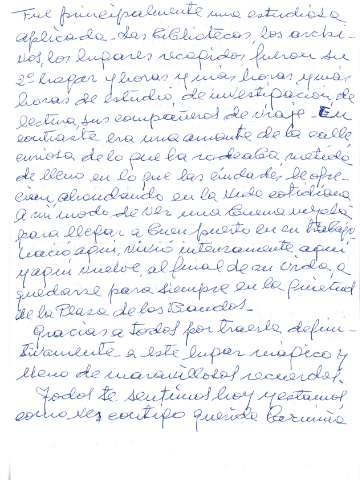 Fue principalmente una estudiosa
aplicada. Las bibliotecas los archi-
vos, los lugares recogidos fueron su
2º hogar y horas y más horas y más
horas de estudio de investigación, de
lectura, sus compañeros de viaje. En
contraste era una amante de la calle
curiosa de lo que la rodeaba, metida
de lleno en lo que las ciudades le ofre-
cían, ahondando en la vida cotidiana
A mi modo de ver una buena mezcla
para llegar a buen puerto en su trabajo.
Nació aquí, vivió intensamente aquí
y aquí vuelve, al final de su vida, a
quedarse para siempre en la quietud
de la Plaza de los Bandos.
Gracias a todos por traerla defini-
tivamente a este lugar mágico y
lleno de maravillosos recuerdos.
Todos te sentimos hoy y estamos
como ves contigo querida Carmiña